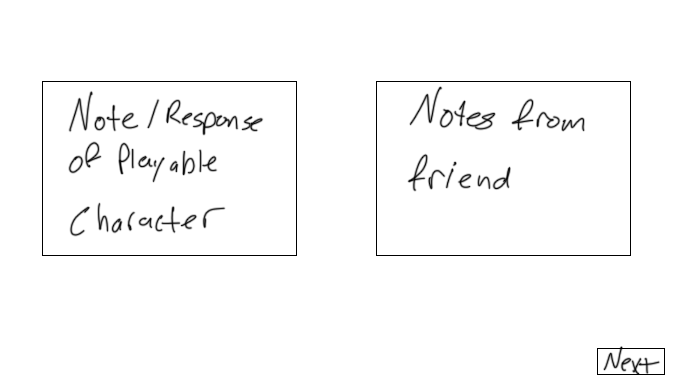 Note/Response
of Playable
Character
Notes from
friend
Next